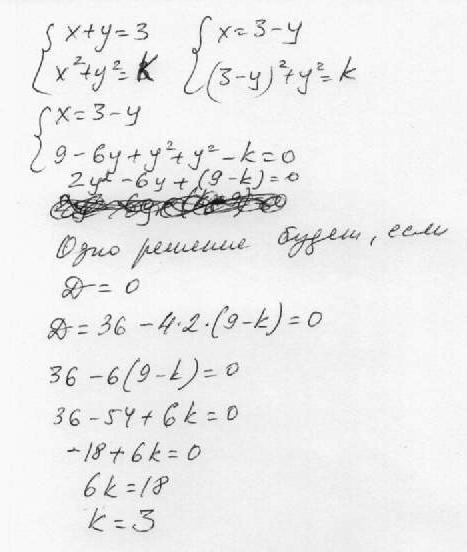 {x+y=3 {x=3-y
{x²+y²=k {(3-y)²+y²=k
{x=3-y
{9-6y+y²+y²-k=0
2y²-6y+(9-k)=0
Одно решение будет, если
D=0
D=36-4·2·(9-k)=0
36-6(9-k)=0
36-54+6k=0
-18+6k=0
6k=18
k=3